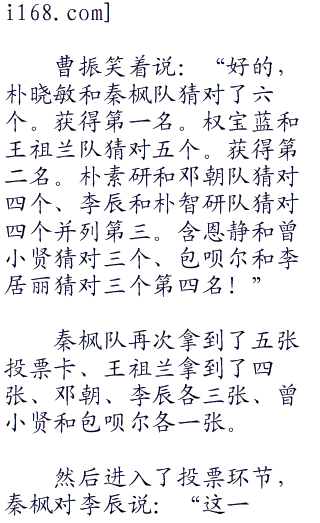 i168.com]
曹振笑着说：“好的，
朴晓敏和秦枫队猜对了六
个。获得第一名。权宝蓝和
王祖兰队猜对五个。获得第
二名。朴素研和邓朝队猜对
四个、李辰和朴智研队猜对
四个并列第三。含恩静和曾
小贤猜对三个、包呗尔和李
居丽猜对三个第四名！”
秦枫队再次拿到了五张
投票卡、王祖兰拿到了四
张、邓朝、李辰各三张、曾
小贤和包呗尔各一张。
然后进入了投票环节，
秦枫对李辰说：“这一